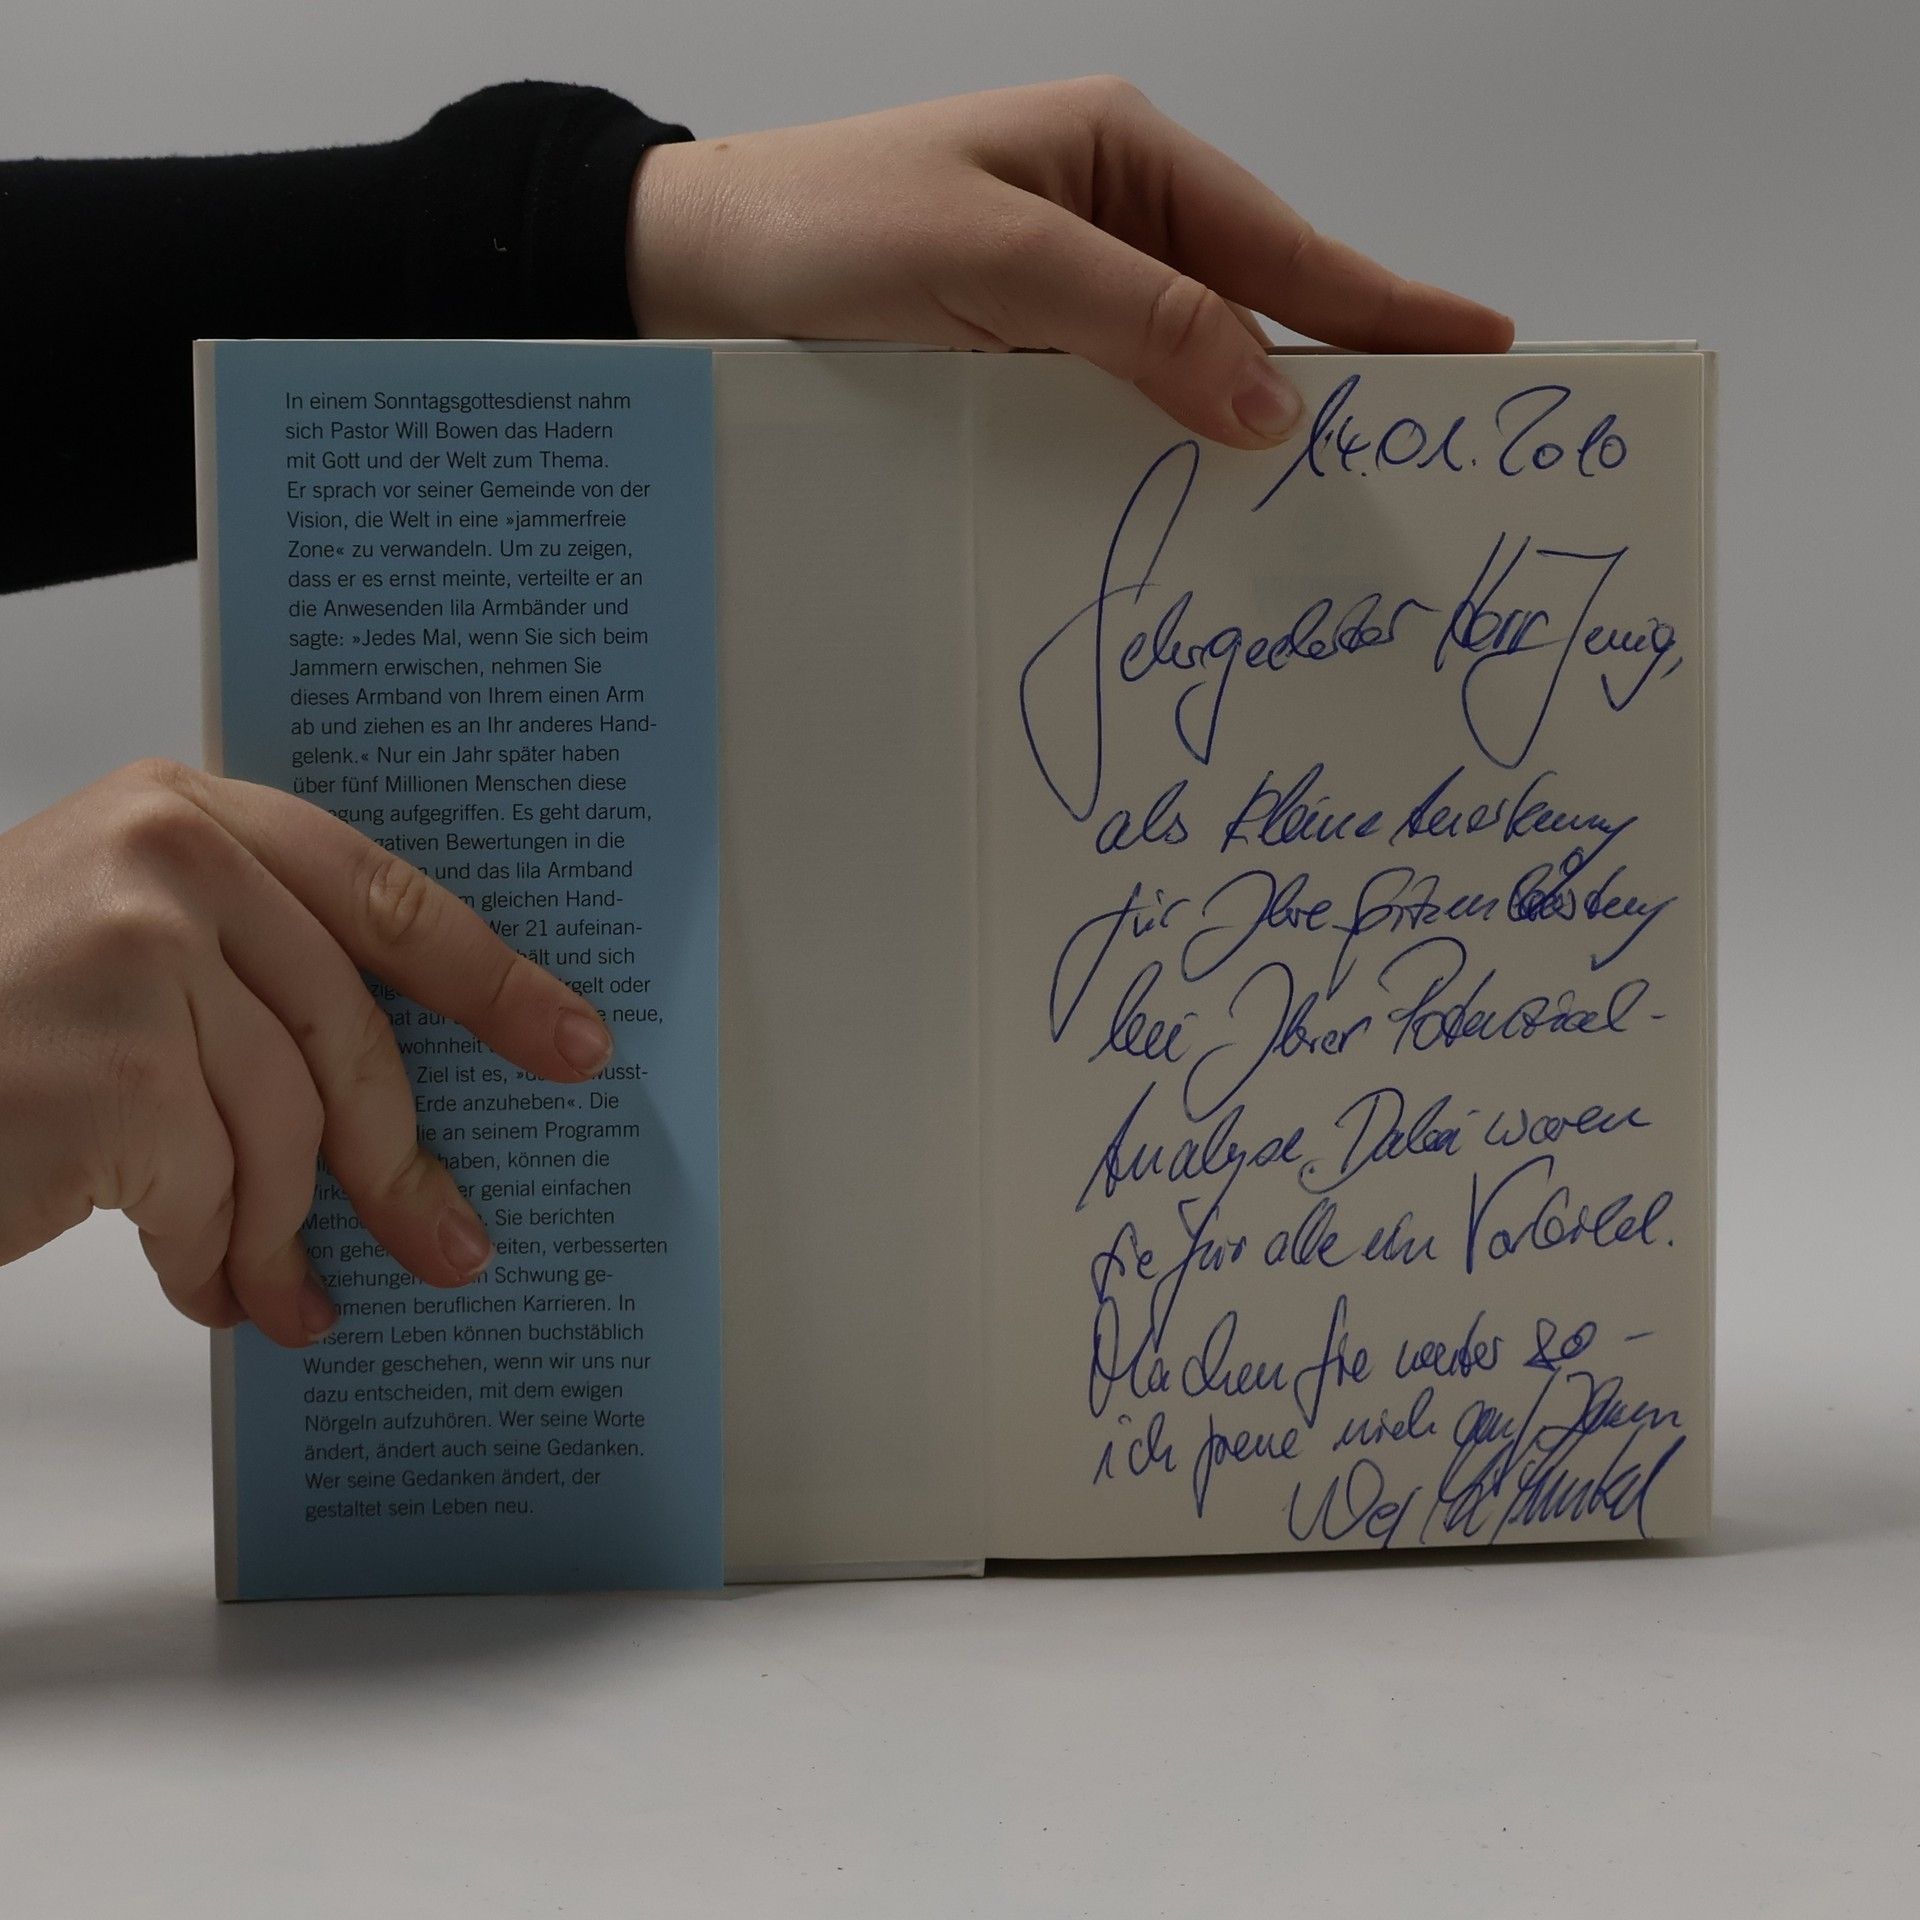 In einem Sonntagsgottesdienst nahm
sich Pastor Will Bowen das Hadern
mit Gott und der Welt zum Thema.
Er sprach vor seiner Gemeinde von der
Vision, die Welt in eine »jammerfreie
Zone« zu verwandeln. Um zu zeigen,
dass er es ernst meinte, verteilte er an
die Anwesenden lila Armbänder und
sagte: »Jedes Mal, wenn Sie sich beim
Jammern erwischen, nehmen Sie
dieses Armband von Ihrem einen Arm
ab und ziehen es an Ihr anderes Hand-
gelenk.« Nur ein Jahr später haben
über fünf Millionen Menschen diese
aufgegriffen. Es geht darum,
Bewertungen in die
und das lila Armband
gleichen Hand-
Wer 21 aufeinan-
und sich
oder
neue,
Ziel ist es,
Erde anzuheben«. Die
an seinem Programm
haben, können die
genial einfachen
Sie berichten
von verbesserten
Schwung ge-
beruflichen Karrieren. In
unserem Leben können buchstäblich
Wunder geschehen, wenn wir uns nur
dazu entscheiden, mit dem ewigen
Nörgeln aufzuhören. Wer seine Worte
ändert, ändert auch seine Gedanken.
Wer seine Gedanken ändert, der
gestaltet sein Leben neu.
14.01.2010
Sehrgeehrter Herr
als kleine Anerkennung
für Ihre Spitzenleistung
bei Ihrer Potenzial-
Analyse. Dabei waren
Sie für alle ein Vorbild.
Machen Sie weiter so –
ich freue mich auf Ihren